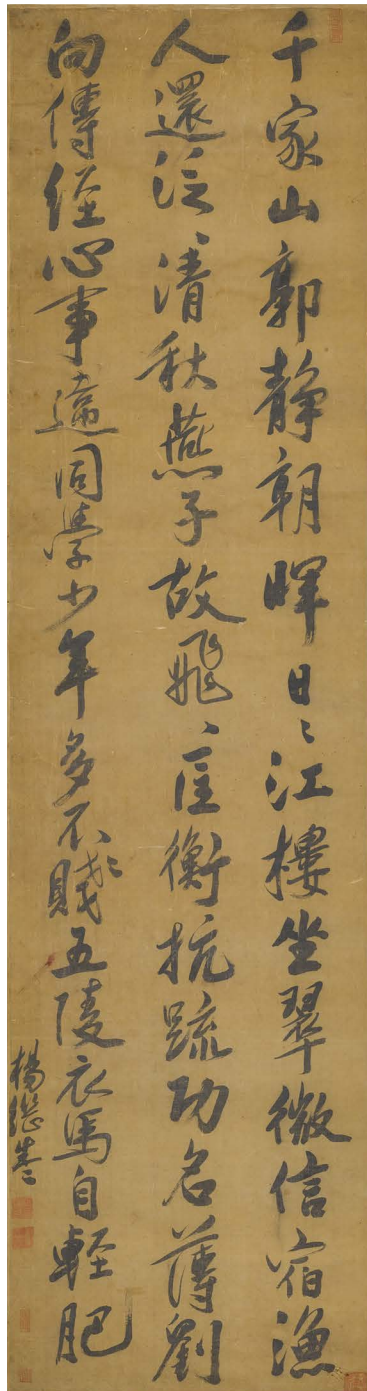 千家山郭靜朝暉日〻江樓坐翠微信宿漁
人還泛〻清秋燕子故飛〻匡衡抗疏功名薄劉
向傳經心事違同學少年多不賤五陵衣馬自輕肥
楊繼盛